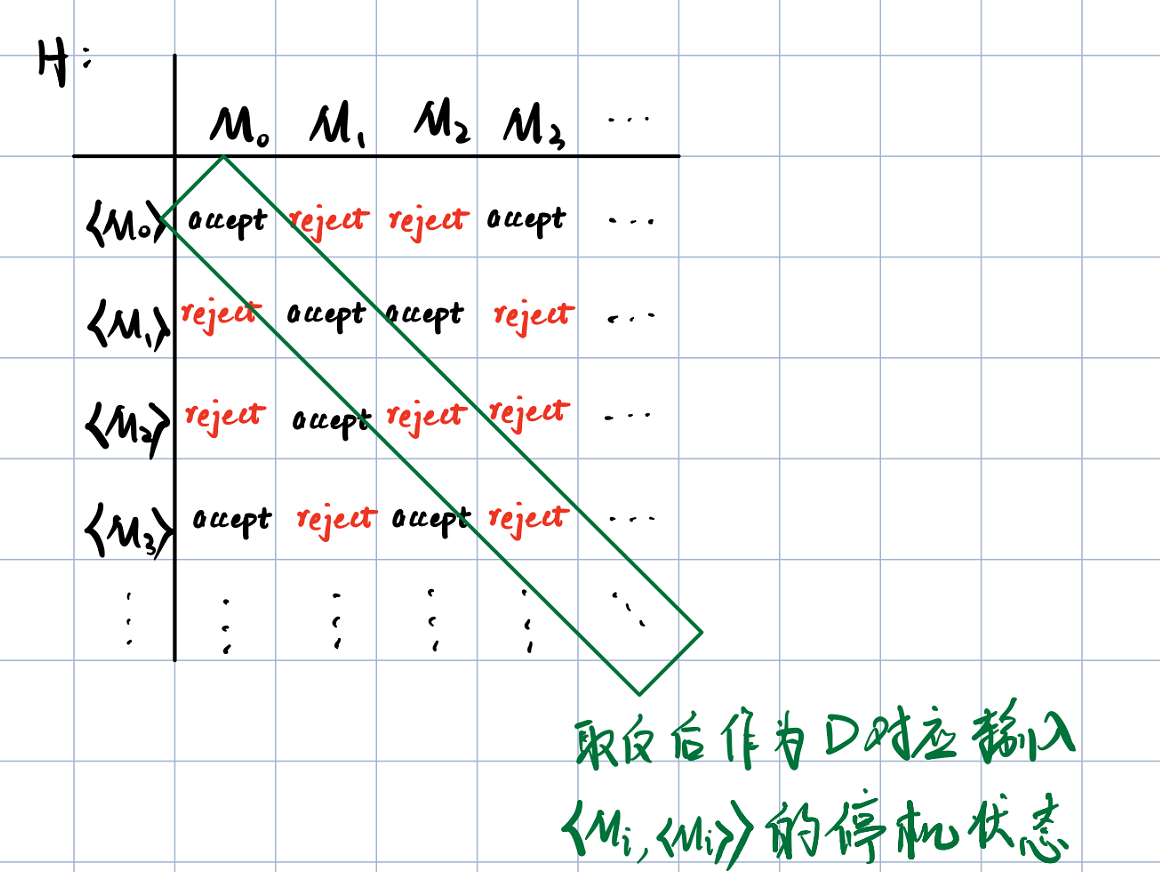 H:
M₀ M₁ M₂ M₃ ...
⟨M₀⟩ accept reject reject accept ...
⟨M₁⟩ reject accept accept reject ...
⟨M₂⟩ reject accept reject reject ...
⟨M₃⟩ accept reject accept reject ...
取反后作为D对应输入
⟨Mi,⟨Mi⟩⟩的停机状态